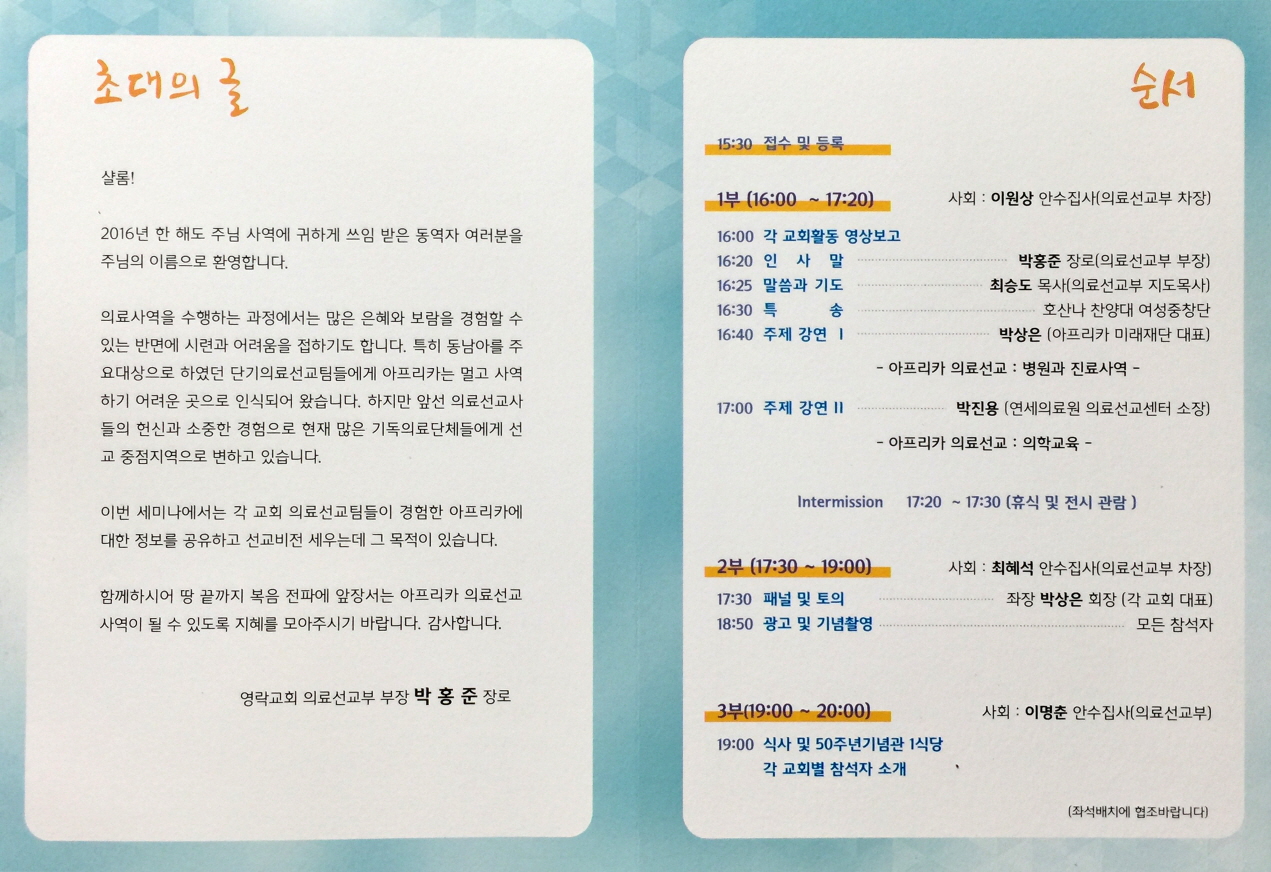 초대의 글
샬롬!
2016년 한 해도 주님 사역에 귀하게 쓰임 받은 동역자 여러분을
주님의 이름으로 환영합니다.
의료사역을 수행하는 과정에서는 많은 은혜와 보람을 경험할 수
있는 반면에 시련과 어려움을 접하기도 합니다. 특히 동남아를 주
요대상으로 하였던 단기의료선교팀들에게 아프리카는 멀고 사역
하기 어려운 곳으로 인식되어 왔습니다. 하지만 앞선 의료선교사
들의 헌신과 소중한 경험으로 현재 많은 기독의료단체들에게 선
교 중점지역으로 변하고 있습니다.
이번 세미나에서는 각 교회 의료선교팀들이 경험한 아프리카에
대한 정보를 공유하고 선교비전 세우는데 그 목적이 있습니다.
함께하시어 땅 끝까지 복음 전파에 앞장서는 아프리카 의료선교
사역이 될 수 있도록 지혜를 모아주시기 바랍니다. 감사합니다.
영락교회 의료선교부 부장 박 홍 준 장로
순서
15:30 접수 및 등록
1부 (16:00 ~ 17:20) 사회 : 이원상 안수집사(의료선교부 차장)
16:00 각 교회활동 영상보고
16:20 인 사 말 박홍준 장로(의료선교부 부장)
16:25 말씀과 기도 최승도 목사(의료선교부 지도목사)
16:30 특 송 호산나 찬양대 여성중창단
16:40 주제 강연 I 박상은 (아프리카 미래재단 대표)
- 아프리카 의료선교 : 병원과 진료사역 -
17:00 주제 강연 II 박진용 (연세의료원 의료선교센터 소장)
- 아프리카 의료선교 : 의학교육 -
Intermission 17:20 ~ 17:30 (휴식 및 전시 관람 )
2부 (17:30 ~ 19:00) 사회 : 최혜석 안수집사(의료선교부 차장)
17:30 패널 및 토의 좌장 박상은 회장 (각 교회 대표)
18:50 광고 및 기념촬영 모든 참석자
3부(19:00 ~ 20:00) 사회 : 이명춘 안수집사(의료선교부)
19:00 식사 및 50주년기념관 1식당
각 교회별 참석자 소개
(좌석배치에 협조바랍니다)